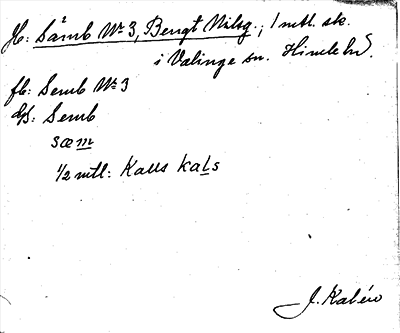 Jb: Sämb No 3, Bengt Nilsg.; 1 mtl. sk.
i Valinge sn. Himle hd.
fb: Semb No 3
ds: Semb
sæm
1/2 mtl: Kalls kaLs
J. Kalén